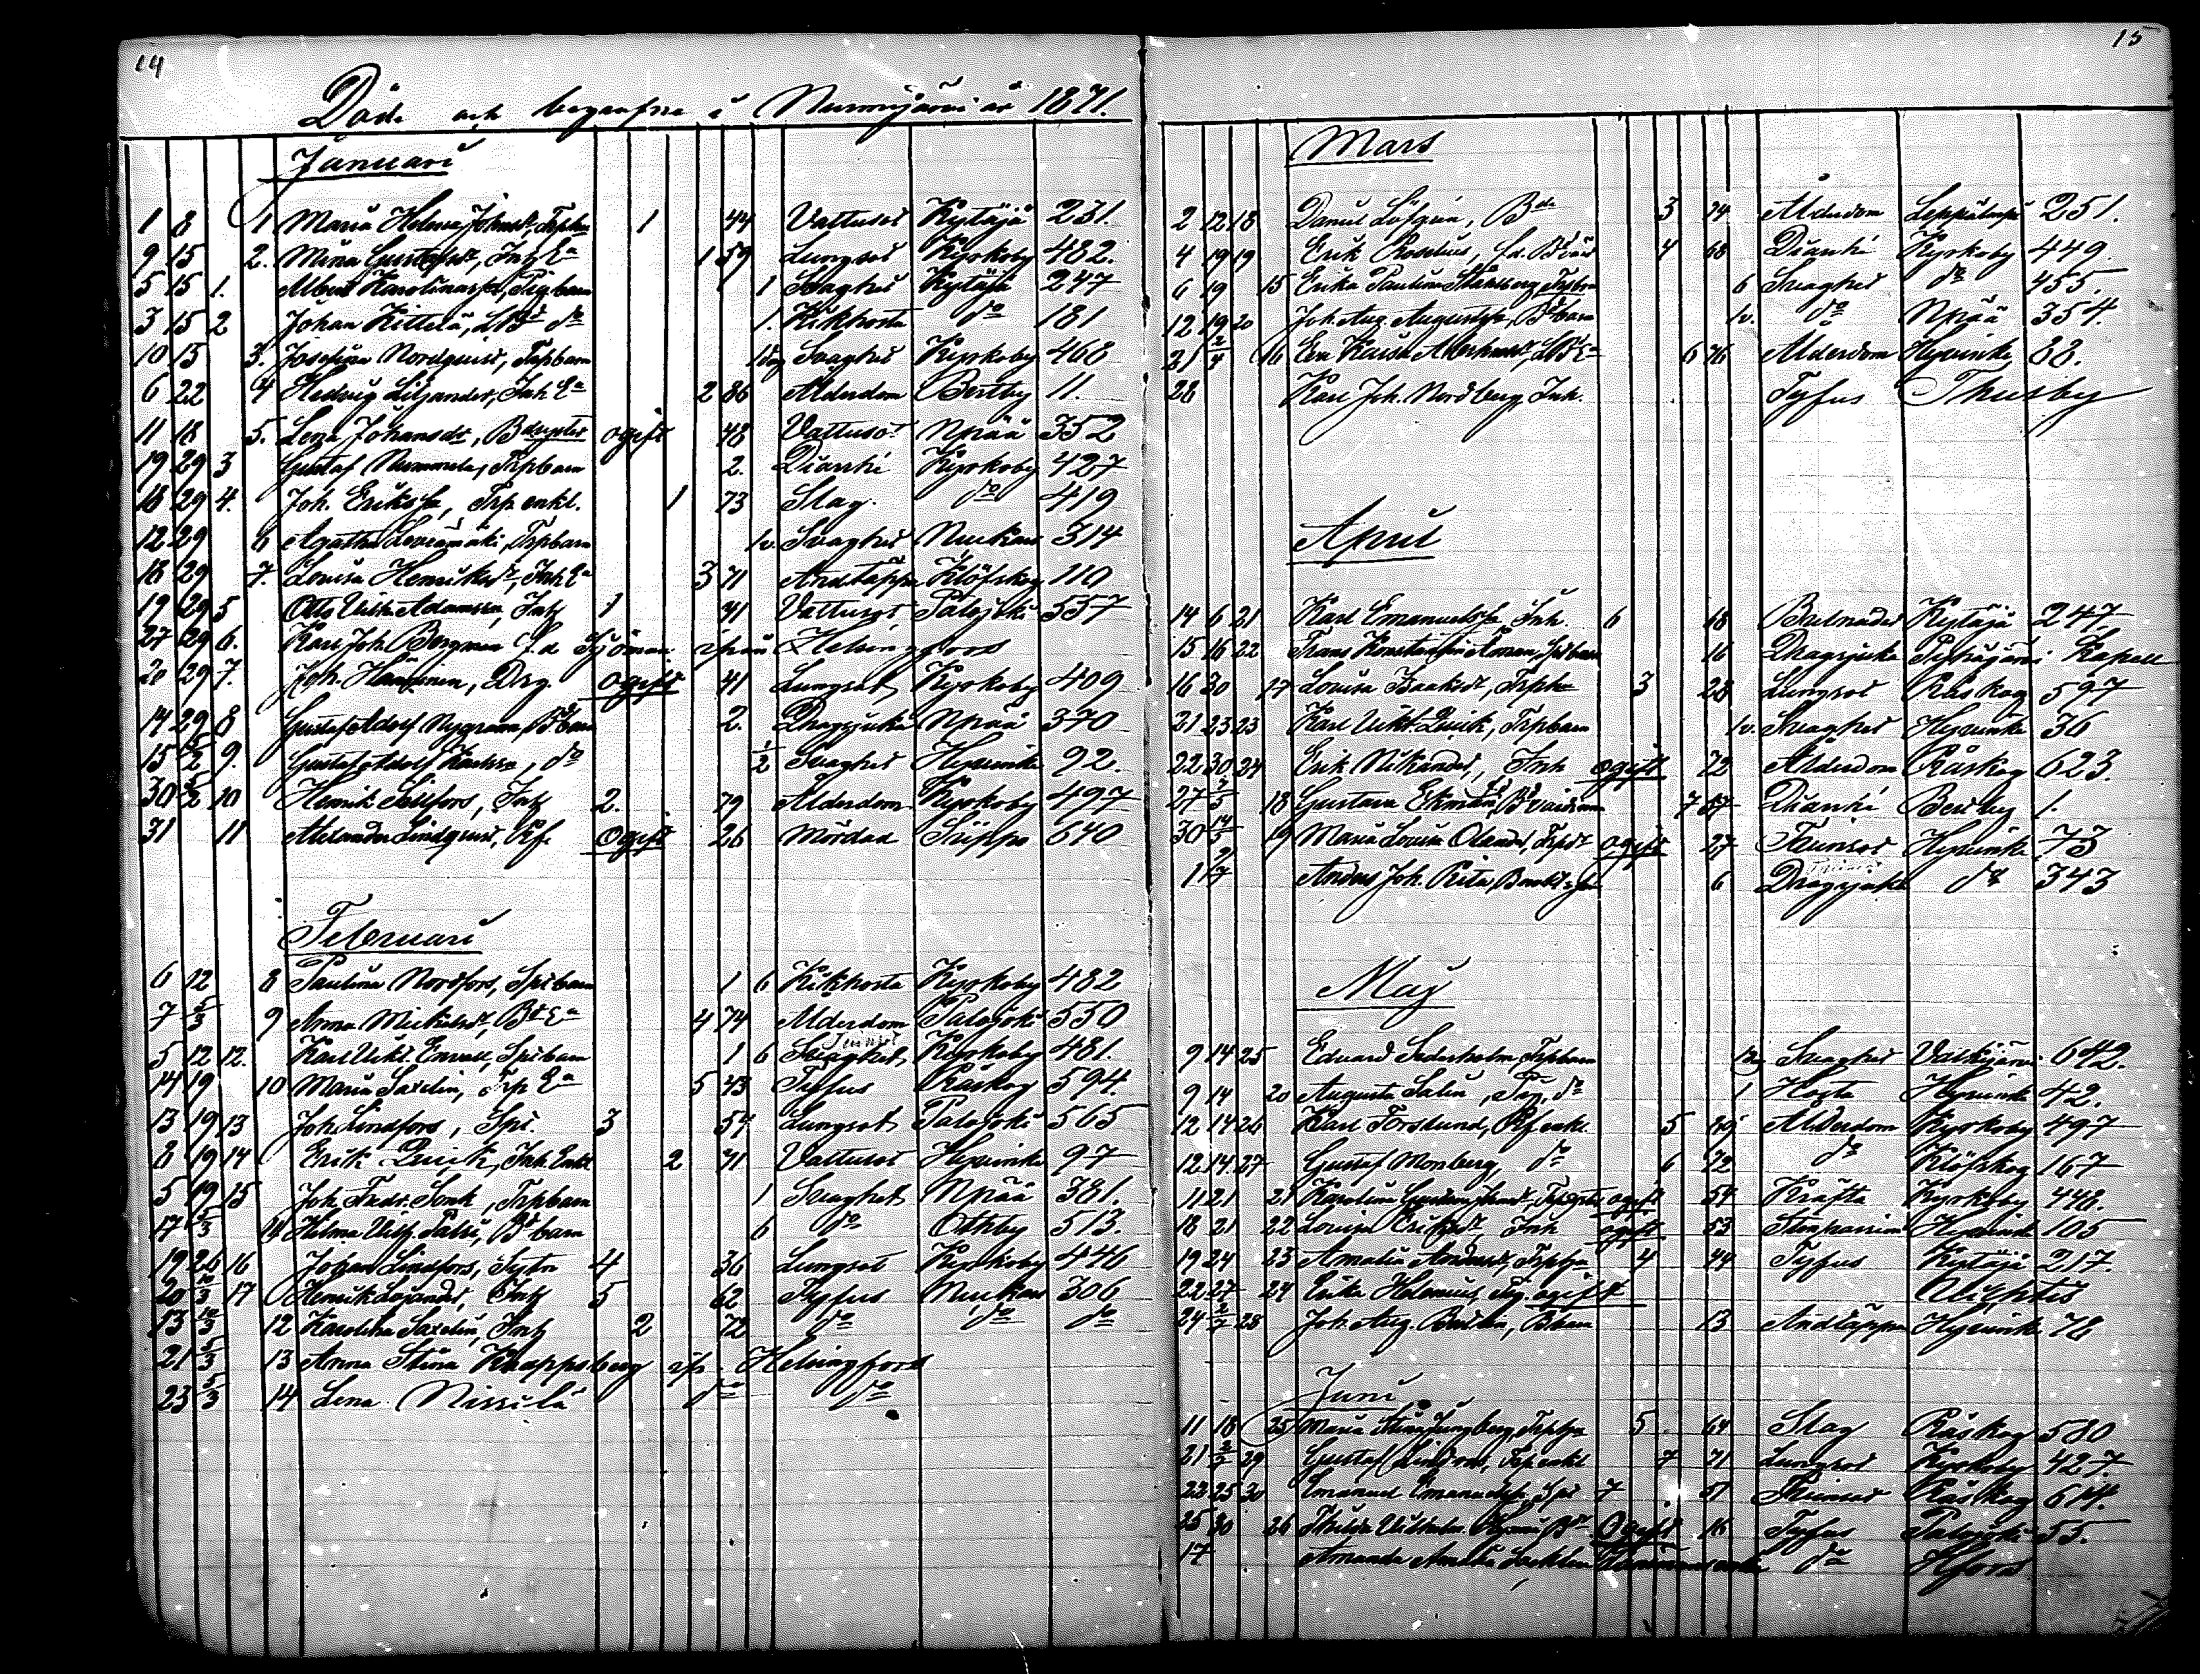 14
Döde och begrafne i Nurmijärvi år 1871.
Januari
1 8 1 Maria Helena Johansdr, Trphu 1 44 Vattusot Kytäjä 231.
9 15 2. Maria Gustafsdr, Inh Ea 1 59 Lungsot Kyrkoby 482.
5 15 1. Albert Karolinasson, Pigbarn 1 Svaghet Kytäjä 247
3 15 2 Johan Kittelä, do 1. Kikhosta do 181
10 15 3. Josefina Nordqvist, Trpbarn 1 dag Svaghet Kyrkoby 468
6 22 4 Hedvig Liljander, Inh Ea 2 86 Ålderdom Bertby 11.
11 18 5. Lena Johansdr, ogift 48 Vattusot Npää 352
19 29 3 Gustaf Nummela, Trpbarn 2. Diarrhé Kyrkoby 427
18 29 4. Joh. Eriksson, Trp enkl. 1 73 Slag do 419
12 29 6 Agatha Trpbarn 1v. Svaghet Nukari 314
18 29 7. Lovisa Henriksdr, Inh Ea 3 71 Andtäppa Klöfskog 110
19 29 5 Otto Vilh. Adamsson, Inh 1 41 Vattusot Palojoki 557
27 29 6. Karl Joh. Bergman f.d. Sjöman ifrån Helsingfors
20 29 7. Joh. Hänninen, Drg. ogift 41 Lungsot Kyrkoby 409
14 29 8 Gustaf Adolf Nygren, Bdbarn 2. Dragsjuka Npää 370
15 5/2 9. Gustaf Adolf do 1/2 Svaghet Hyvinkä 92.
30 5/2 10 Henrik Sellfors, Inh 2. 79 Ålderdom Kyrkoby 497
31 11 Alexander Lindqvist, Rf. Ogift 26 Mördad Seippo 640
Februari
6 12 8 Paulina Nordfors, Spbarn 1 6 Kikhosta Kyrkoby 482
7 5/3 9 Anna Mickelsdr, Bd Ea 4 74 Ålderdom Palojoki 550
5 12 12. Karl Vikt. Spbarn 1 6 Svaghet Kyrkoby 481.
14 19 10 Maria Saxelin, Trp Ea 5 43 Tyfus Råskog 594.
13 19 13 Joh. Lindfors, Spi. 3 54 Lungsot Palojoki 565
8 19 14 Erik Qvick, Inh Enkl 2 71 Vattusot Hyvinkä 97
5 19 15 Joh. Fredr. Trpbarn 1 Svaghet Npää 381.
17 5/3 11 Helma Vilh. Bdbarn 6 do Othby 513.
19 26 16 Johan Lindfors, 4 36 Lungsot Kyrkoby 446
20 12/3 17 Henrik Inh 5 62 Tyfus Nukari 306
13 12/3 12 Karolina Saxelin, Inh 2 72 do do do
21 5/3 13 Anna Stina Knappsberg ifr. Helsingfors
23 5/3 14 Lena Nissilä do do
15
Mars
2 12 18 Daniel Löfgrén, Bde 3 74 Ålderdom Leppälampi 251.
4 19 19 Erik Roselius, f.d. 4 68 Diarrhé Kyrkoby 449.
6 19 15 Erika Paulina Trpbrn 6 Svaghet do 455.
12 19 20 Joh. Aug. Augustsson, Bdbarn 1v. do Npää 354.
21 2/4 16 Eva Kaisa 6 76 Ålderdom Hyvinkä 88.
28 Karl Joh. Nordberg, Inh. Tyfus Thusby
April
14 6 21 Karl Emanuelsson, Inh. 6 48 Kytäjä 247.
15 16 22 Frans Konstantin Spbarn 16 Dragsjuka Kapell
16 30 17 Lovisa Isaksdr, Trphu 3 28 Lungsot Råskog 597
21 23 23 Karl Vikt. Qvick, Trpbarn 1v. Svaghet Hyvinkä 36
22 30 24 Erik Nikander, Inh ogift 72 Ålderdom Råskog 623.
27 2/5 18 Gustava Ekman, 7 57 Diarrhé Bertby 1.
30 14/5 19 Maria Lovisa Trpdr ogift 27 Hyvinkä 73
1 Anders Joh. 6 Dragsjuka do 343
Maj
9 14 25 Eduard Sederholm, Trpbarn Svaghet Valkjärvi 642.
9 14 20 Augusta Salin, do 1 Hosta Hyvinkä 42.
12 14 26 Karl Forslund, Rf enkl. 5 Ålderdom Kyrkoby 497
12 14 27 Gustaf Monberg, do 6 72 do Klöfskog 167
11 21 21 Karolina ogift 54 Kräfta Kyrkoby 448.
18 21 22 Lovisa Eriksdr, Inh ogift 53 Hyvinkä 105
19 24 23 Amalia Andersdr, Trphu 4 44 Tyfus Kytäjä 217
22 27 24 Erika ogift
24 2/7 28 Joh. Aug. Bdbarn 13 Andtäppa Hyvinkä 78
Juni
11 18 25 Maria Stina Ljungberg, Trphu 5. 64 Slag Råskog 580
21 2/7 29 Gustaf Lindroos, Trp enkl 7 71 Lungsot Kyrkoby 427.
23 25 30 Emanuel Emanuelsson, 7 51 Råskog 614.
25 30 26 Hilda Vilhelmina Ogift 16 Tyfus Palojoki 55.
17 Amanda Amalia do Hfors